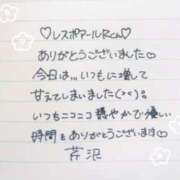 ♡レスポアールRさん♡
ありがとうございました♡
今日は、いつもに増して
甘えてしまいました(><)。
いつもニコニコ穏やかで優しい
時間をありがとうございます♡
芹沢